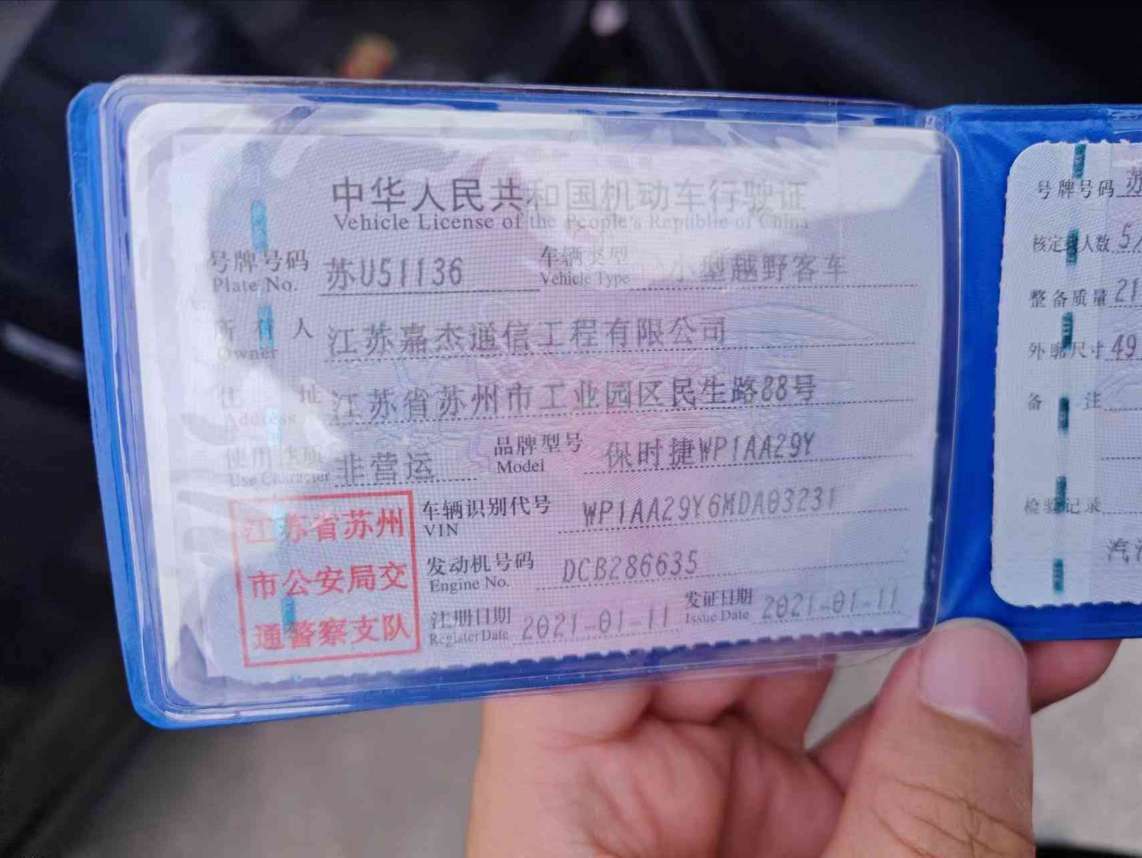 中华人民共和国机动车行驶证
Vehicle License of the People's Republic of China
号牌号码 苏U51136 车辆类型 小型越野客车
Plate No. Vehicle Type
所有人 江苏嘉杰通信工程有限公司
Owner
住址 江苏省苏州市工业园区民生路88号
Address
使用性质 非营运 品牌型号 保时捷WP1AA29Y
Use Character Model
江苏省苏州
市公安局交
通警察支队
车辆识别代号 WP1AA29Y6MDA03231
VIN
发动机号码 DCB286635
Engine No.
注册日期 2021-01-11 发证日期 2021-01-11
Register Date Issue Date
号牌号码 苏
核定载人数 5
整备质量 21
外廓尺寸 49
备注
检验记录